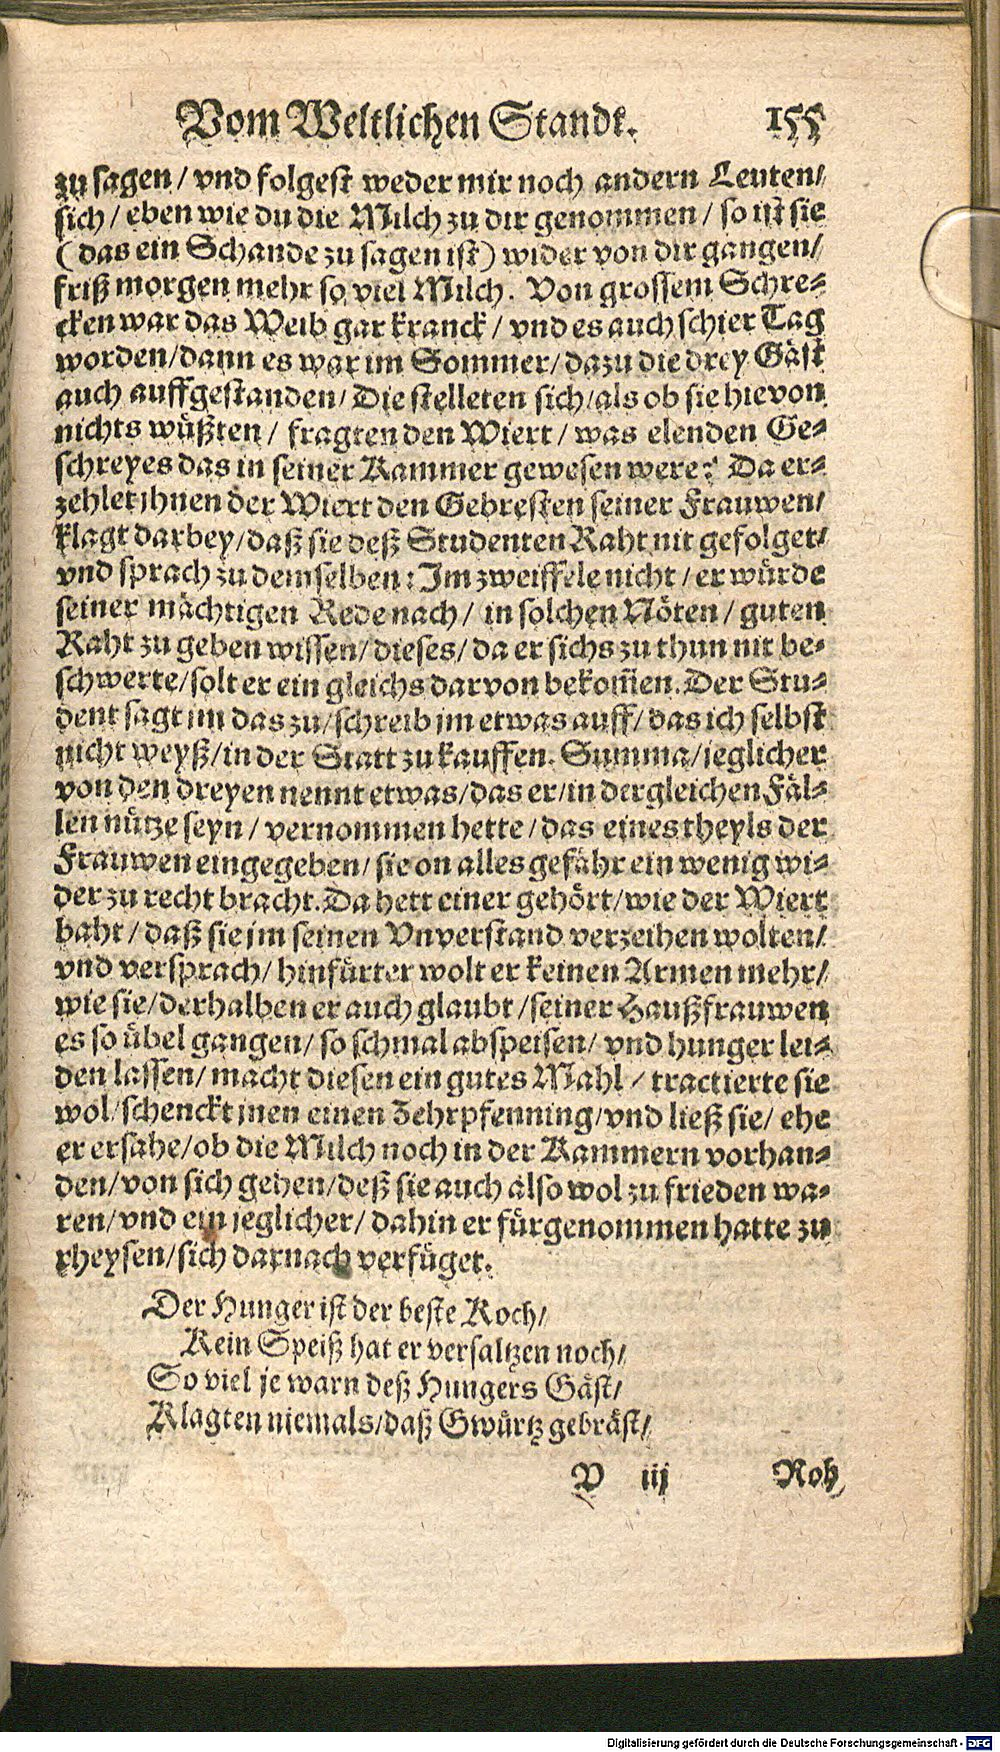 Vom Weltlichen Standt. 155
zu sagen / vnd folgest weder mir noch andern Leuten/
sich / eben wie du die Milch zu dir genommen / so ist sie
( das ein Schande zu sagen ist) wider von dir gangen/
friß morgen mehr so viel Milch. Von grossem Schre-
cken war das Weib gar kranck / vnd es auch schier Tag
worden/dann es war im Sommer/dazu die drey Gäst
auch auffgestanden/ Die stelleten sich/als ob sie hievon
nichts wüßten / fragten den Wiert / was elenden Ge-
schreyes das in seiner Kammer gewesen were? Da er-
zehlet jhnen der Wiert den Gebresten seiner Frauwen/
klagt darbey/daß sie deß Studenten Raht nit gefolget/
vnd sprach zu demselben: Im zweiffele nicht / er würde
seiner mächtigen Rede nach / in solchen Nöten / guten
Raht zu geben wissen/ dieses/ da er sichs zu thun nit be-
schwerte/solt er ein gleichs darvon bekom̃en. Der Stu-
dent sagt im das zu/schreib jm etwas auff/das ich selbst
nicht weyß/in der Statt zu kauffen. Summa/jeglicher
von den dreyen nennt etwas/das er/in dergleichen Fäl-
len nütze seyn / vernommen hette / das eines theyls der
Frauwen eingegeben/ sie on alles gefähr ein wenig wi-
der zu recht bracht. Da hett einer gehört/wie der Wiert
baht / daß sie jm seinen Vnverstand verzeihen wolten/
vnd versprach/ hinfürter wolt er keinen Armen mehr/
wie sie/derhalben er auch glaubt /seiner Haußfrauwen
es so übel gangen/ so schmal abspeisen/ vnd hunger lei-
den lassen/ macht diesen ein gutes Mahl / tractierte sie
wol/schenckt jnen einen Zehrpfenning/vnd ließ sie/ ehe
er ersahe/ob die Milch noch in der Kammern vorhan-
den/von sich gehen/deß sie auch also wol zu frieden wa-
ren/vnd ein jeglicher/ dahin er fürgenommen hatte zu
rheysen/sich darnach verfüget.
Der Hunger ist der beste Koch/
Kein Speiß hat er versaltzen noch/
So viel je warn deß Hungers Gäst/
Klagten niemals/daß Gwürtz gebräst/
V iij Roh
Digitalisierung gefördert durch die Deutsche Forschungsgemeinschaft - DFG